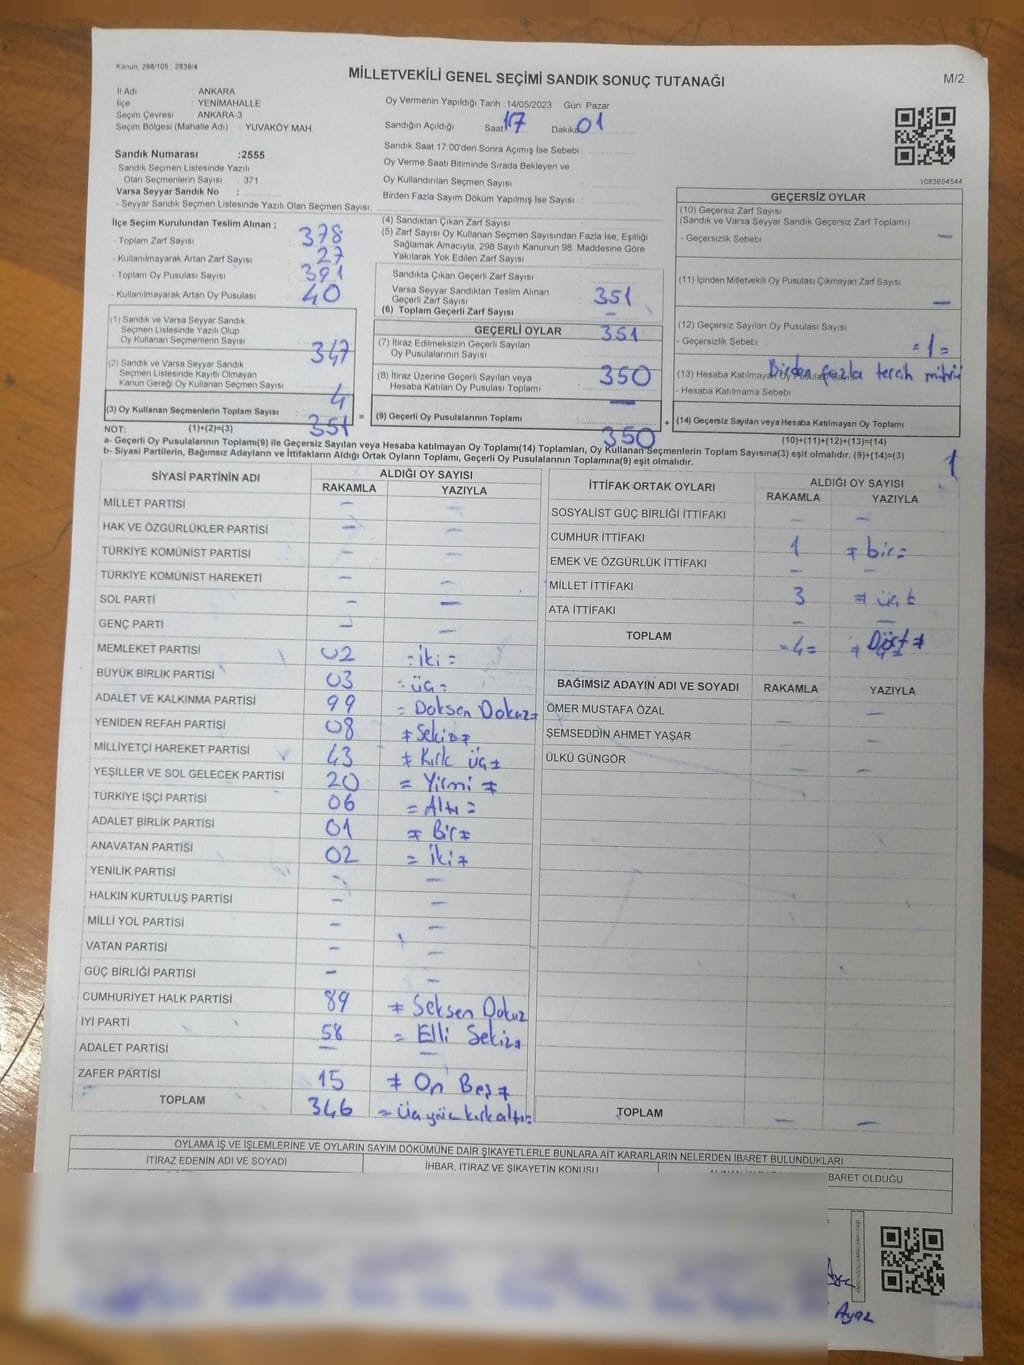 Kanun: 298/105 , 2839/4
MİLLETVEKİLİ GENEL SEÇİMİ SANDIK SONUÇ TUTANAĞI
M/2
İl Adı : ANKARA
İlçe : YENİMAHALLE
Seçim Çevresi : ANKARA-3
Seçim Bölgesi (Mahalle Adı) : YUVAKÖY MAH.
Oy Vermenin Yapıldığı Tarih : 14/05/2023 Gün: Pazar
Sandığın Açıldığı Saat 17 Dakika 01
Sandık Saat 17:00'den Sonra Açmış İse Sebebi
Oy Verme Saati Bitiminde Sırada Bekleyen ve
Oy Kullandırılan Seçmen Sayısı
Birden Fazla Sayım Döküm Yapılmış İse Sayısı :
1083694544
Sandık Numarası :2555
Sandık Seçmen Listesinde Yazılı
Olan Seçmenlerin Sayısı : 371
Varsa Seyyar Sandık No :
- Seyyar Sandık Seçmen Listesinde Yazılı Olan Seçmen Sayısı:
İlçe Seçim Kurulundan Teslim Alınan ;
- Toplam Zarf Sayısı : 378
- Kullanılmayarak Artan Zarf Sayısı : 27
- Toplam Oy Pusulası Sayısı : 391
- Kullanılmayarak Artan Oy Pusulası : 40
(1) Sandık ve Varsa Seyyar Sandık
Seçmen Listesinde Yazılı Olup
Oy Kullanan Seçmenlerin Sayısı 347
(2) Sandık ve Varsa Seyyar Sandık
Seçmen Listesinde Kayıtlı Olmayan
Kanun Gereği Oy Kullanan Seçmen Sayısı 4
(3) Oy Kullanan Seçmenlerin Toplam Sayısı 351
NOT: (1)+(2)=(3)
(4) Sandıktan Çıkan Zarf Sayısı
(5) Zarf Sayısı Oy Kullanan Seçmen Sayısından Fazla İse, Eşitliği
Sağlamak Amacıyla, 298 Sayılı Kanunun 98. Maddesine Göre
Yakılarak Yok Edilen Zarf Sayısı
Sandıkta Çıkan Geçerli Zarf Sayısı :
Varsa Seyyar Sandıktan Teslim Alınan
Geçerli Zarf Sayısı : 351
(6) Toplam Geçerli Zarf Sayısı –
GEÇERLİ OYLAR 351
(7) İtiraz Edilmeksizin Geçerli Sayılan
Oy Pusulalarının Sayısı
(8) İtiraz Üzerine Geçerli Sayılan veya
Hesaba Katılan Oy Pusulaları Toplamı : 350
= (9) Geçerli Oy Pusulalarının Toplamı –
350
GEÇERSİZ OYLAR
(10) Geçersiz Zarf Sayısı
(Sandık ve Varsa Seyyar Sandık Geçersiz Zarf Toplamı)
- Geçersizlik Sebebi –
(11) İçinden Milletvekili Oy Pusulası Çıkmayan Zarf Sayısı
–
(12) Geçersiz Sayılan Oy Pusulası Sayısı :
- Geçersizlik Sebebi = 1 =
(13) Hesaba Katılmayan Oy Pusulası Sayısı
Birden fazla tercih
- Hesaba Katılmama Sebebi
+ (14) Geçersiz Sayılan veya Hesaba Katılmayan Oy Toplamı
(10)+(11)+(12)+(13)=(14)
1
a- Geçerli Oy Pusulalarının Toplamı(9) ile Geçersiz Sayılan veya Hesaba katılmayan Oy Toplamı(14) Toplamları, Oy Kullanan Seçmenlerin Toplam Sayısına(3) eşit olmalıdır. (9)+(14)=(3)
b- Siyasi Partilerin, Bağımsız Adayların ve İttifakların Aldığı Ortak Oyların Toplamı, Geçerli Oy Pusulalarının Toplamına(9) eşit olmalıdır.
SİYASİ PARTİNİN ADI ALDIĞI OY SAYISI
RAKAMLA YAZIYLA
MİLLET PARTİSİ – –
HAK VE ÖZGÜRLÜKLER PARTİSİ – –
TÜRKİYE KOMÜNİST PARTİSİ – –
TÜRKİYE KOMÜNİST HAREKETİ – –
SOL PARTİ – –
GENÇ PARTİ – –
MEMLEKET PARTİSİ 02 = iki =
BÜYÜK BİRLİK PARTİSİ 03 = üç =
ADALET VE KALKINMA PARTİSİ 99 = Doksan Dokuz =
YENİDEN REFAH PARTİSİ 08 = Sekiz =
MİLLİYETÇİ HAREKET PARTİSİ 43 = Kırk üç =
YEŞİLLER VE SOL GELECEK PARTİSİ 20 = Yirmi =
TÜRKİYE İŞÇİ PARTİSİ 06 = Altı =
ADALET BİRLİK PARTİSİ 01 = Bir =
ANAVATAN PARTİSİ 02 = iki =
YENİLİK PARTİSİ – –
HALKIN KURTULUŞ PARTİSİ – –
MİLLİ YOL PARTİSİ – –
VATAN PARTİSİ – –
GÜÇ BİRLİĞİ PARTİSİ – –
CUMHURİYET HALK PARTİSİ 89 = Seksen Dokuz
İYİ PARTİ 58 = Elli Sekiz =
ADALET PARTİSİ – –
ZAFER PARTİSİ 15 = On Beş =
TOPLAM 346 = üçyüzkırkaltı =
İTTİFAK ORTAK OYLARI ALDIĞI OY SAYISI
RAKAMLA YAZIYLA
SOSYALİST GÜÇ BİRLİĞİ İTTİFAKI – –
CUMHUR İTTİFAKI 1 = bir =
EMEK VE ÖZGÜRLÜK İTTİFAKI – –
MİLLET İTTİFAKI 3 = üç =
ATA İTTİFAKI – –
TOPLAM = 4 = = Dört =
BAĞIMSIZ ADAYIN ADI VE SOYADI RAKAMLA YAZIYLA
ÖMER MUSTAFA ÖZAL – –
ŞEMSEDDİN AHMET YAŞAR – –
ÜLKÜ GÜNGÖR – –
TOPLAM – –
OYLAMA İŞ VE İŞLEMLERİNE VE OYLARIN SAYIM DÖKÜMÜNE DAİR ŞİKAYETLERLE BUNLARA AİT KARARLARIN NELERDEN İBARET BULUNDUKLARI
İTİRAZ EDENİN ADI VE SOYADI İHBAR, İTİRAZ VE ŞİKAYETİN KONUSU
İBARET OLDUĞU
Ayaz